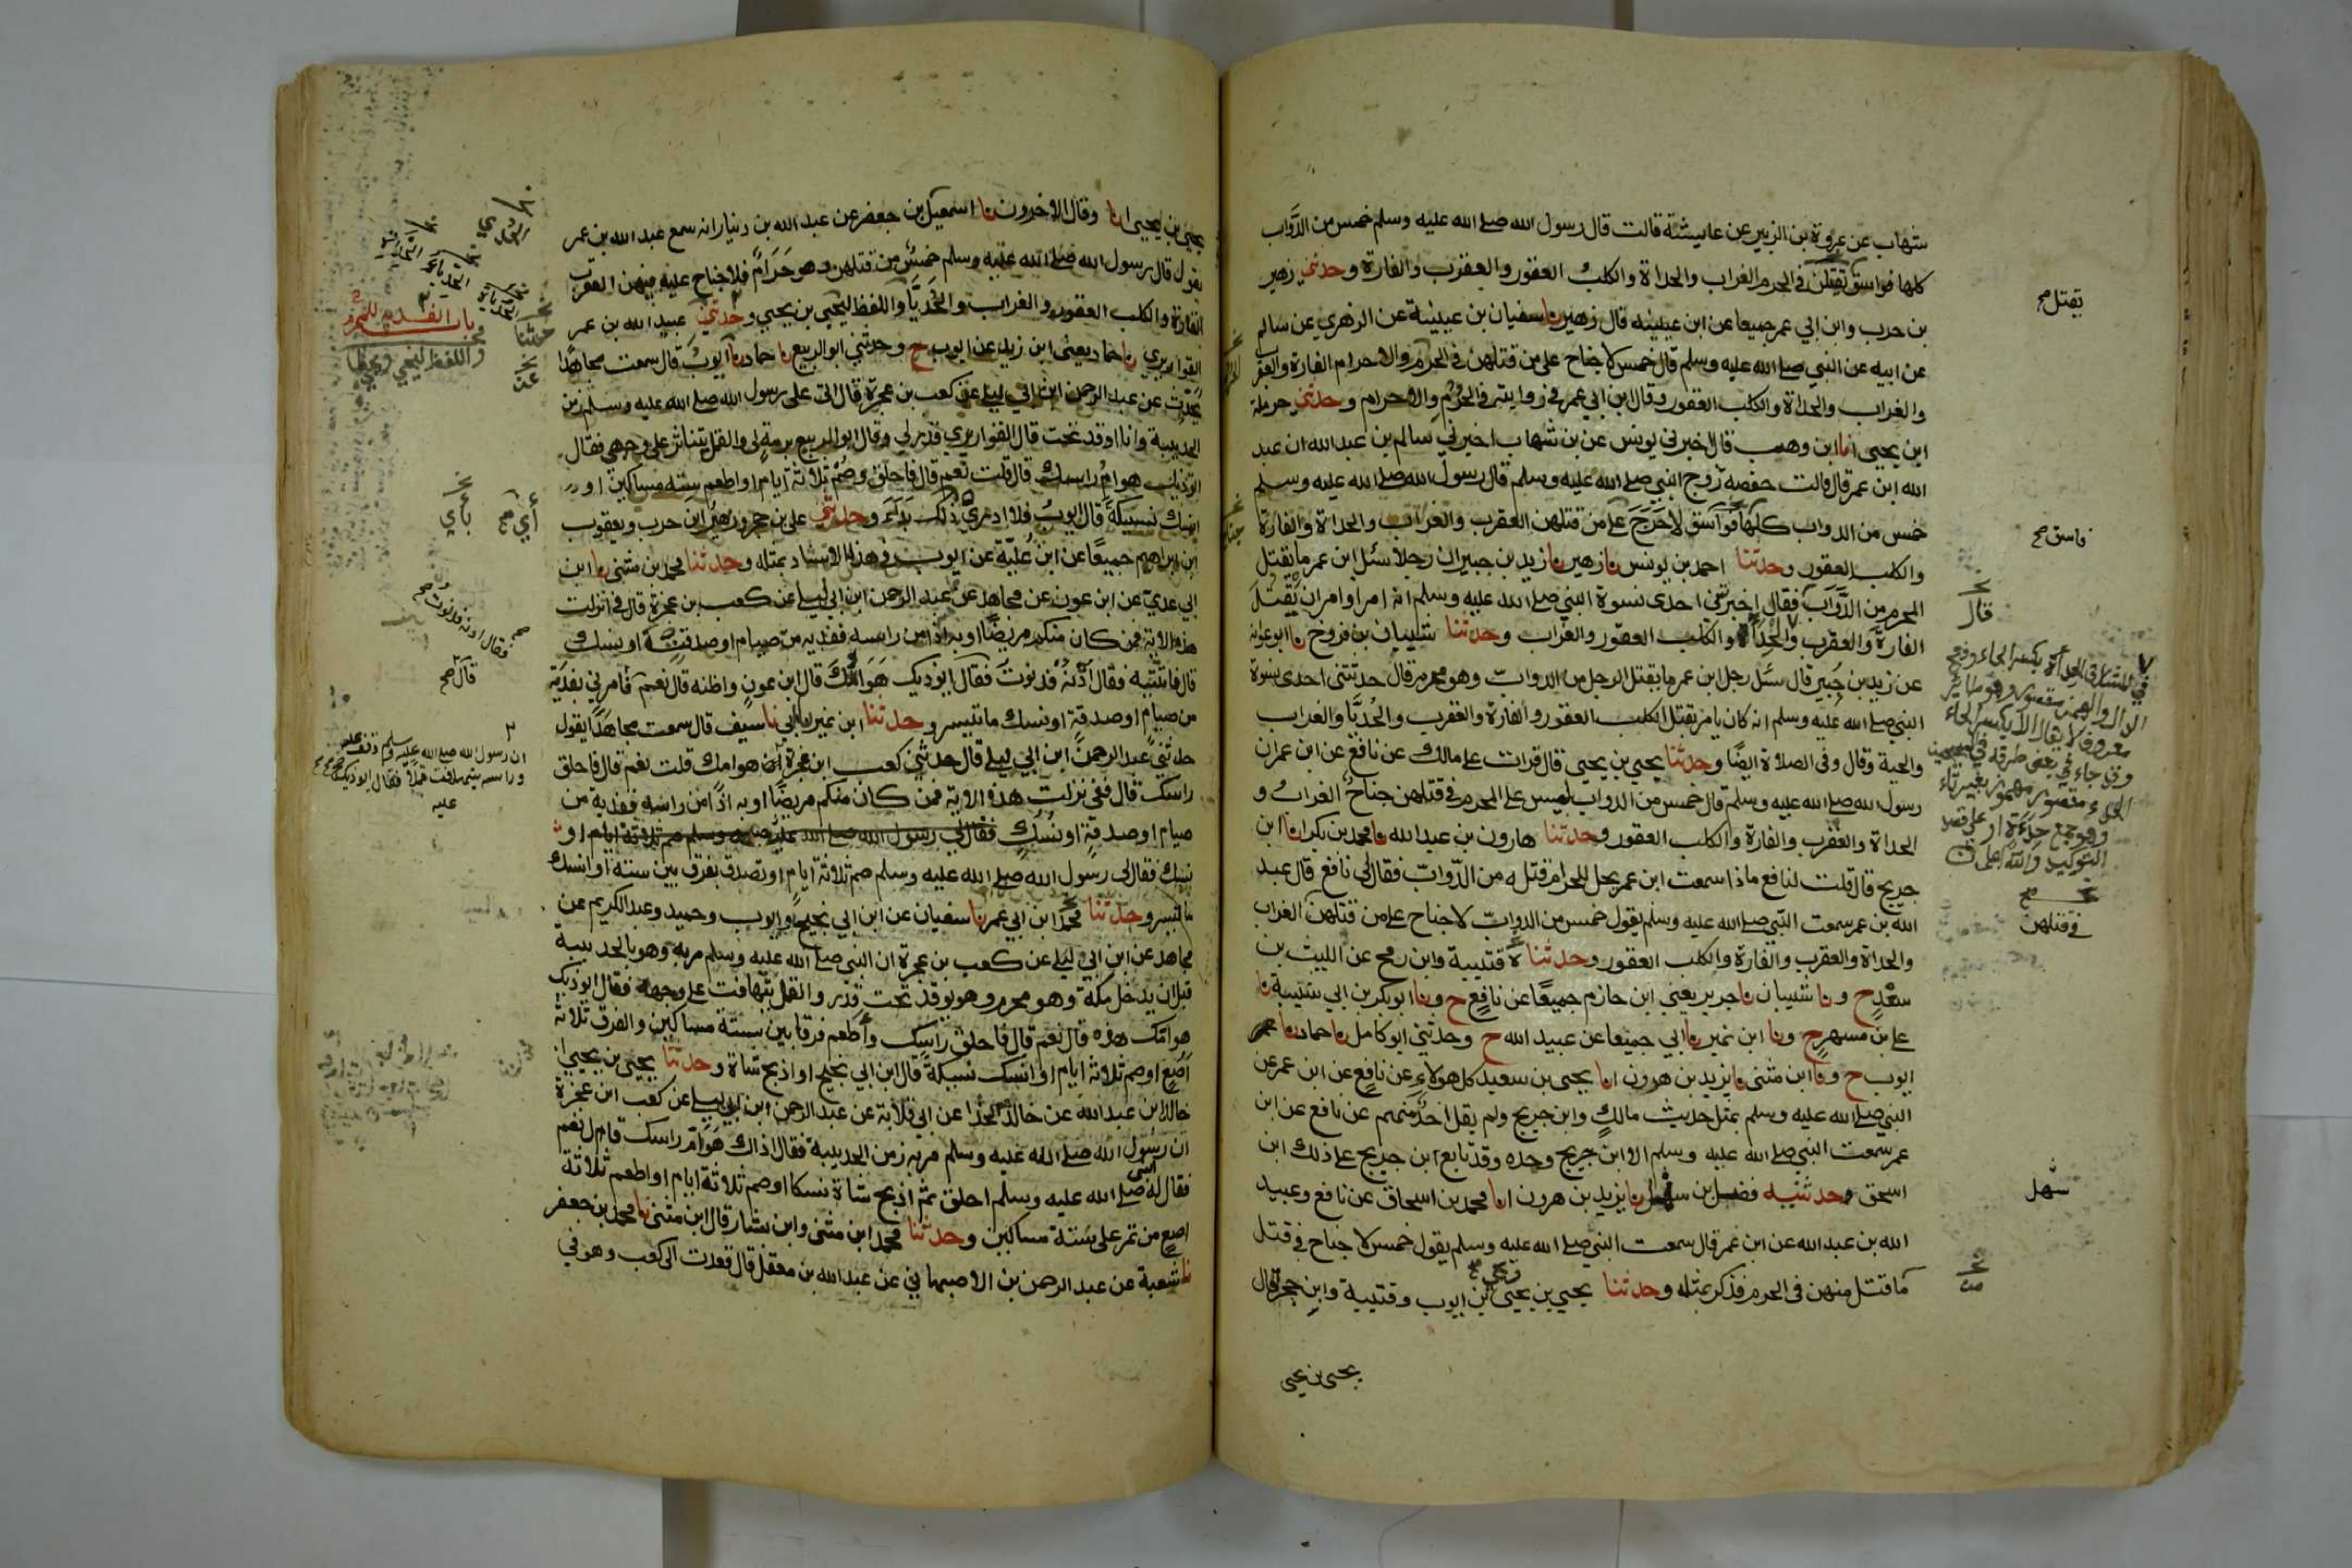 شهاب عن عروة بن الزبير عن عايشة قالت قال رسول الله صلى الله عليه وسلم خمس من الدَّوَاب
كلها فواسق تقتلن في الحرم الغراب والحداة والكلب العقور والعقرب والفارة وحدثني زهير
بن حرب وابن ابي عمر جميعا عن ابن عيينه قال زهير نا سفيان بن عيينة عن الزهري عن سالم
عن ابيه عن النبي صلى الله عليه وسلم قال خمس لا جناح على من قتلهن في الحرم والاحرام الفارة والعقرب
والغراب والحداة والكلب العقور وقال ابن ابي عمر في روايته في الحُرُم والاحرام وحدثني حرملة
ابن يحيى انا ابن وهب قال اخبرني يونس عن بن شهاب اخبرني سالم بن عبد الله ان عبد
الله ابن عمر قال قالت حفصة زوج النبي صلى الله عليه وسلم قال رسول الله صلى الله عليه وسلم
خمس من الدواب كلها فواسق لا حَرَجَ على من قتلهن العقرب والغراب والحداة والفارة
والكلب العقور وحدثنا احمد بن يونس نا زهير نا زيد بن جبير ان رجلا سئل ابن عمر ما يقتل
المحرم من الدَّوَاب فقال اخبرتني احدى نسوة النبي صلى الله عليه وسلم انه امر او امر ان يُقتَلَ
الفارة والعقرب والحِدَاة والكلب العقور والغراب وحدثنا شيبان بن فروخ نا ابو عوانه
عن زيد بن جُبير قال سئل رجل ابن عمر ما يقتل الرجل من الدوابّ وهو محرم قال حدثتني احدى نسوة
النبي صلى الله عليه وسلم انه كان يامر بقتل الكلب العقور والفارة والعقرب والحُدَيَّا والغراب
والحية وقال وفي الصلاة ايضًا وحدثنا يحيى بن يحيى قال قرات على مالك عن نافع عن ابن عمر ان
رسول الله صلى الله عليه وسلم قال خمس من الدواب ليس على المحرم في قتلهن جناحٌ الغراب و
الحداة والعقرب والفارة والكلب العقور وحدثنا هارون بن عبد الله نا محمد بن بكر انا ابن
جريج قال قلت لنافع ماذا سمعت ابن عمر يحل للحرام قتله من الدّوابّ فقال لي نافع قال عبد
الله بن عمر سمعت النبي صلى الله عليه وسلم يقول خمس من الدوابّ لا جناح على من قتلهن الغراب
والحداة والعقرب والفارة والكلب العقور وحدثنا ه قتيبة وابن رمح عن الليث بن
سعْدٍ ح ونا شيبان نا جرير يعني ابن حازم جميعًا عن نافِعٍ ح ونا ابو بكر بن ابي شيبة نا
علي بن مسهر ح ونا ابن نمير نا ابي جميعا عن عبيد الله ح وحدثني ابو كامل نا حماد نا
ايوب ح ونا ابن مثنى نا يزيد بن هرون انا يحيى بن سعيد كل هولاءِ عن نافعٍ عن ابن عمر عن
النبي صلى الله عليه وسلم بمثل حديث مالكٍ وابن جريج ولم يقل احدٌ منهم عن نافع عن ابن
عمر سمعت النبي صلى الله عليه وسلم الا ابن جريج وحده وقد تابع ابن جريج على ذلك ابن
اسحق وحدثنيه فضل بن سهل نا يزيد بن هرون انا محمد بن اسحاق عن نافع وعبيد
الله بن عبد الله عن ابن عمر قال سمعت النبي صلى الله عليه وسلم يقول خمس لا جناح في قتل
ما قتل منهن في الحرم فذكر بمثله وحدثنا يحيى بن يحيى ويحيى صح بن ايوب وقتيبة وابن حجر قال
يحيى بن يحيى
يقتل صح
فاسق صح
قال
في المشارق الحدأة بكسر الحاء وفتح
الدال والهمز مقصور وهو طائر
معروف لا يقال الا بكسر الحاء
وقد جاء في بعض طرقه في الصحيحين
الحداء مقصور مهموز بغير تاء
وهو جمع حدأة او على قصد
التوكيد والله اعلم
في قتلهن
سَهل
من
يحيى بن يحيى انا وقال الاخرون نا اسمعيل بن جعفر عن عبد الله بن دينار انه سمع عبد الله بن عمر
يقول قال رسول الله صلى الله عليه وسلم خمسٌ من قتلهن وهو حَرَامٌ فلا جناح عليه فيهن العقرب
الفارة والكلب العقور والغراب والحُدَيَّا واللفظ ليحيى بن يحيى وحدثني عبيد الله بن عمر
القواريري نا حماد يعني ابن زيد عن ايوب ح وحدثني ابو الربيع نا حماد نا ايوبُ قال سمعت مجاهدًا
يحدّث عن عبد الرحمن ابن ابي ليلى عن كعب بن عجرة قال اتى علي رسول الله صلى الله عليه وسلم زمن
الحديبية وانا اوقد تحت قال القواريري قدرٍ لي وقال ابو الربيع برمةٍ لي والقمل يتناثر على وجهي فقال
ايوذيك هوامُ راسك قال قلت نعم قال فاحلق وصُمْ ثلاثة ايام او اطعم سته مساكين او
انسك نسيكةً قال ايوبُ فلا ادري ذلك بَدَاءَ وحدثني علي بن حجر وزهير ابن حرب ويعقوب
ابن ابراهيم جميعًا عن ابن عُليّة عن ايوب في هذا الاسناد بمثله وحدثنا محمد بن مثنى نا ابن
ابي عدي عن ابن عون عن مجاهد عن عبد الرحمن ابن ابي ليلى عن كعب بن عجرة قال في انزلت
هذه الاية فمن كان منكم مريضًا او به اذًا من راسه ففديه من صيام او صدقة او نسك
قال فاتيته فقال اُدْنُهْ فدنوتُ فقال ايوذيك هَوَامُّكَ قال ابن عونٍ واظنه قال نعم فامرني بفديَة
من صيامٍ او صدقةٍ او نسك ما تيسر وحدثنا ابن نمير نا ابي نا سيف قال سمعت مجاهدًا يقول
حدثني عبد الرحمن ابن ابي ليلى قال حدثني كعب ابن عجرة هوامك قلت نعم قال فاحلق
راسك قال ففي نزلت هذه الاية فمن كان منكم مريضًا او به اذًا من راسه ففدية من
صيام او صدقةٍ او نُسُكٍ فقال لي رسول الله صلى الله عليه وسلم صم ثلاثة ايام او
نسك فقال لي رسول الله صلى الله عليه وسلم صم ثلاثة ايام او تصدق بفرق بين ستة او انسك
ما تيسر وحدثنا محمد ابن ابي عمر نا سفيان عن ابن ابي نجيح وايوب وحميد وعبد الكريم عن
مجاهد عن ابن ابي ليلى عن كعب بن عجرة ان النبي صلى الله عليه وسلم مر به وهو بالحديبية
قبل ان يدخل مكة وهو محرم وهو يوقد تحت قِدر والقمل يتهافت على وجهه فقال ايوذيك
هوامك هذه قال نعم قال فاحلق راسك وأطعم فرقا بين ستة مساكين والفرق ثلاثة
اصعٍ او صم ثلاثة ايام او انسك نسيكة قال ابن ابي نجيح او اذبح شاة وحدثنا يحيى بن يحيى انا
خالد ابن عبد الله عن خالد الحذا عن ابي قلابة عن عبد الرحمن ابن ابي ليلى عن كعب ابن عجرة
ان رسول الله صلى الله عليه وسلم مر به زمن الحديبية فقال اذاك هَوَامُّ راسك قال نعم
فقال له النبي صلى الله عليه وسلم احلق ثم اذبح شاة نسكا او صم ثلاثة ايام او اطعم ثلاثة
اصعٍ من تمر على ستة مساكين وحدثنا محمد ابن مثنى وابن بشار قال ابن مثنى نا محمد بن جعفر
نا شعبة عن عبد الرحمن بن الاصبهاني عن عبد الله بن معقل قال قعدت الى كعب وهو في
حدثنا
عن
باب الفديه للمحرم
واللفظ ليحيى بن يحيى
أي صح
بأي
فقال ادنه فدنوت صح
قال صح
ان رسول الله صلى الله عليه وسلم وقف عليه
وراسه يتهافت قملا فقال ايوذيك صح